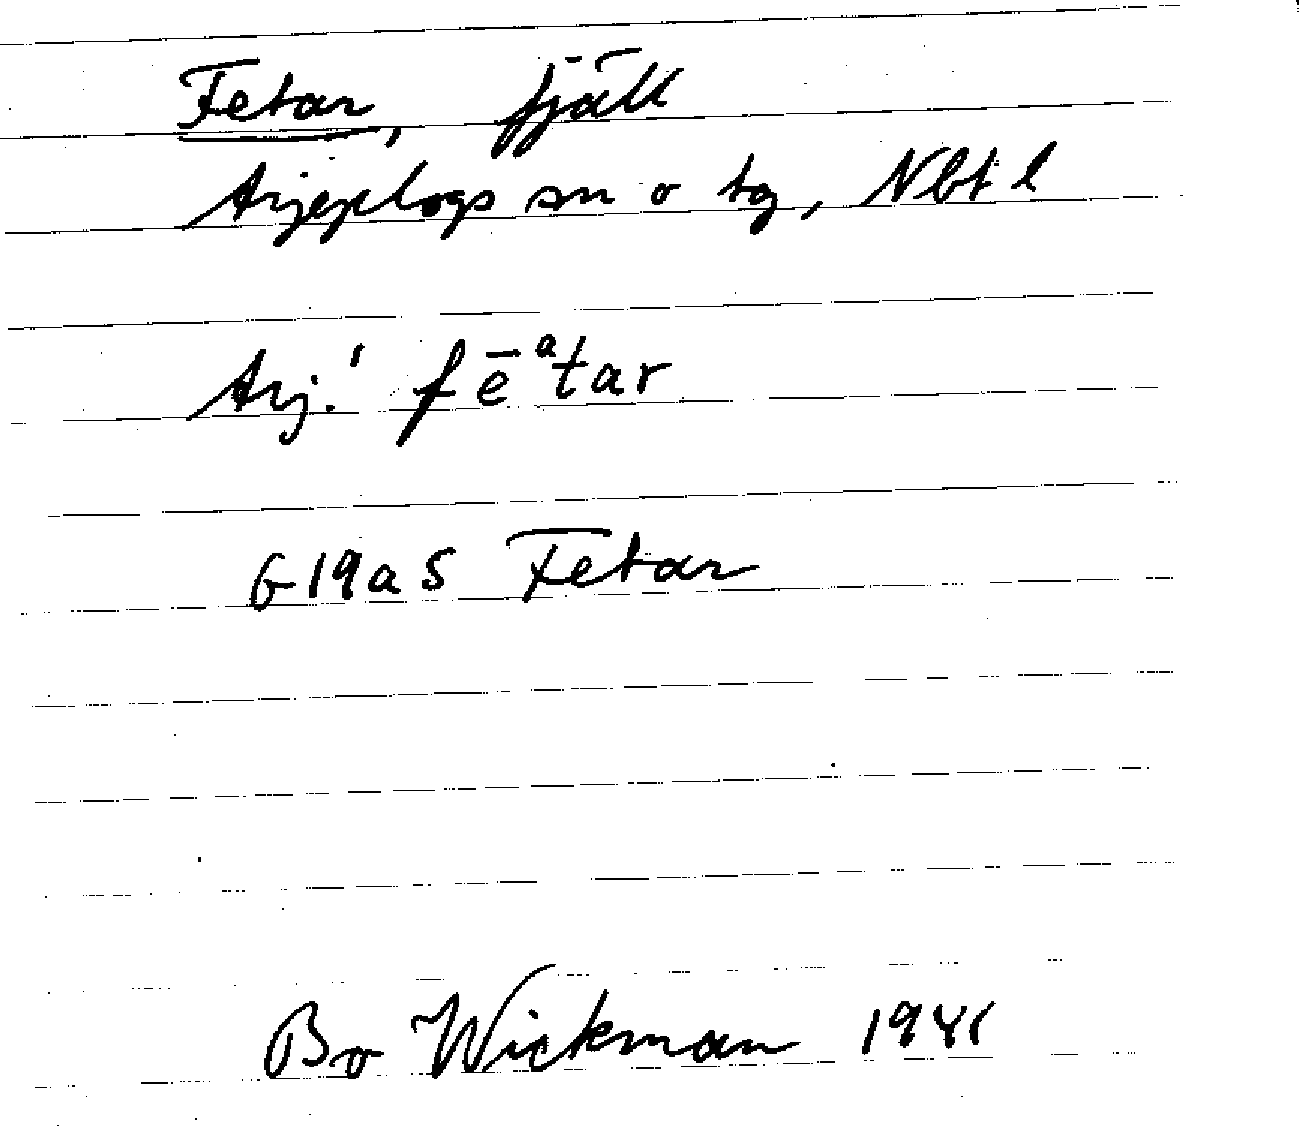 Fetar, fjäll
Arjeplogs sn o tg, Nbt l
Arj.! fēᵃtar
G19a5 Fetar
Bo Wickman